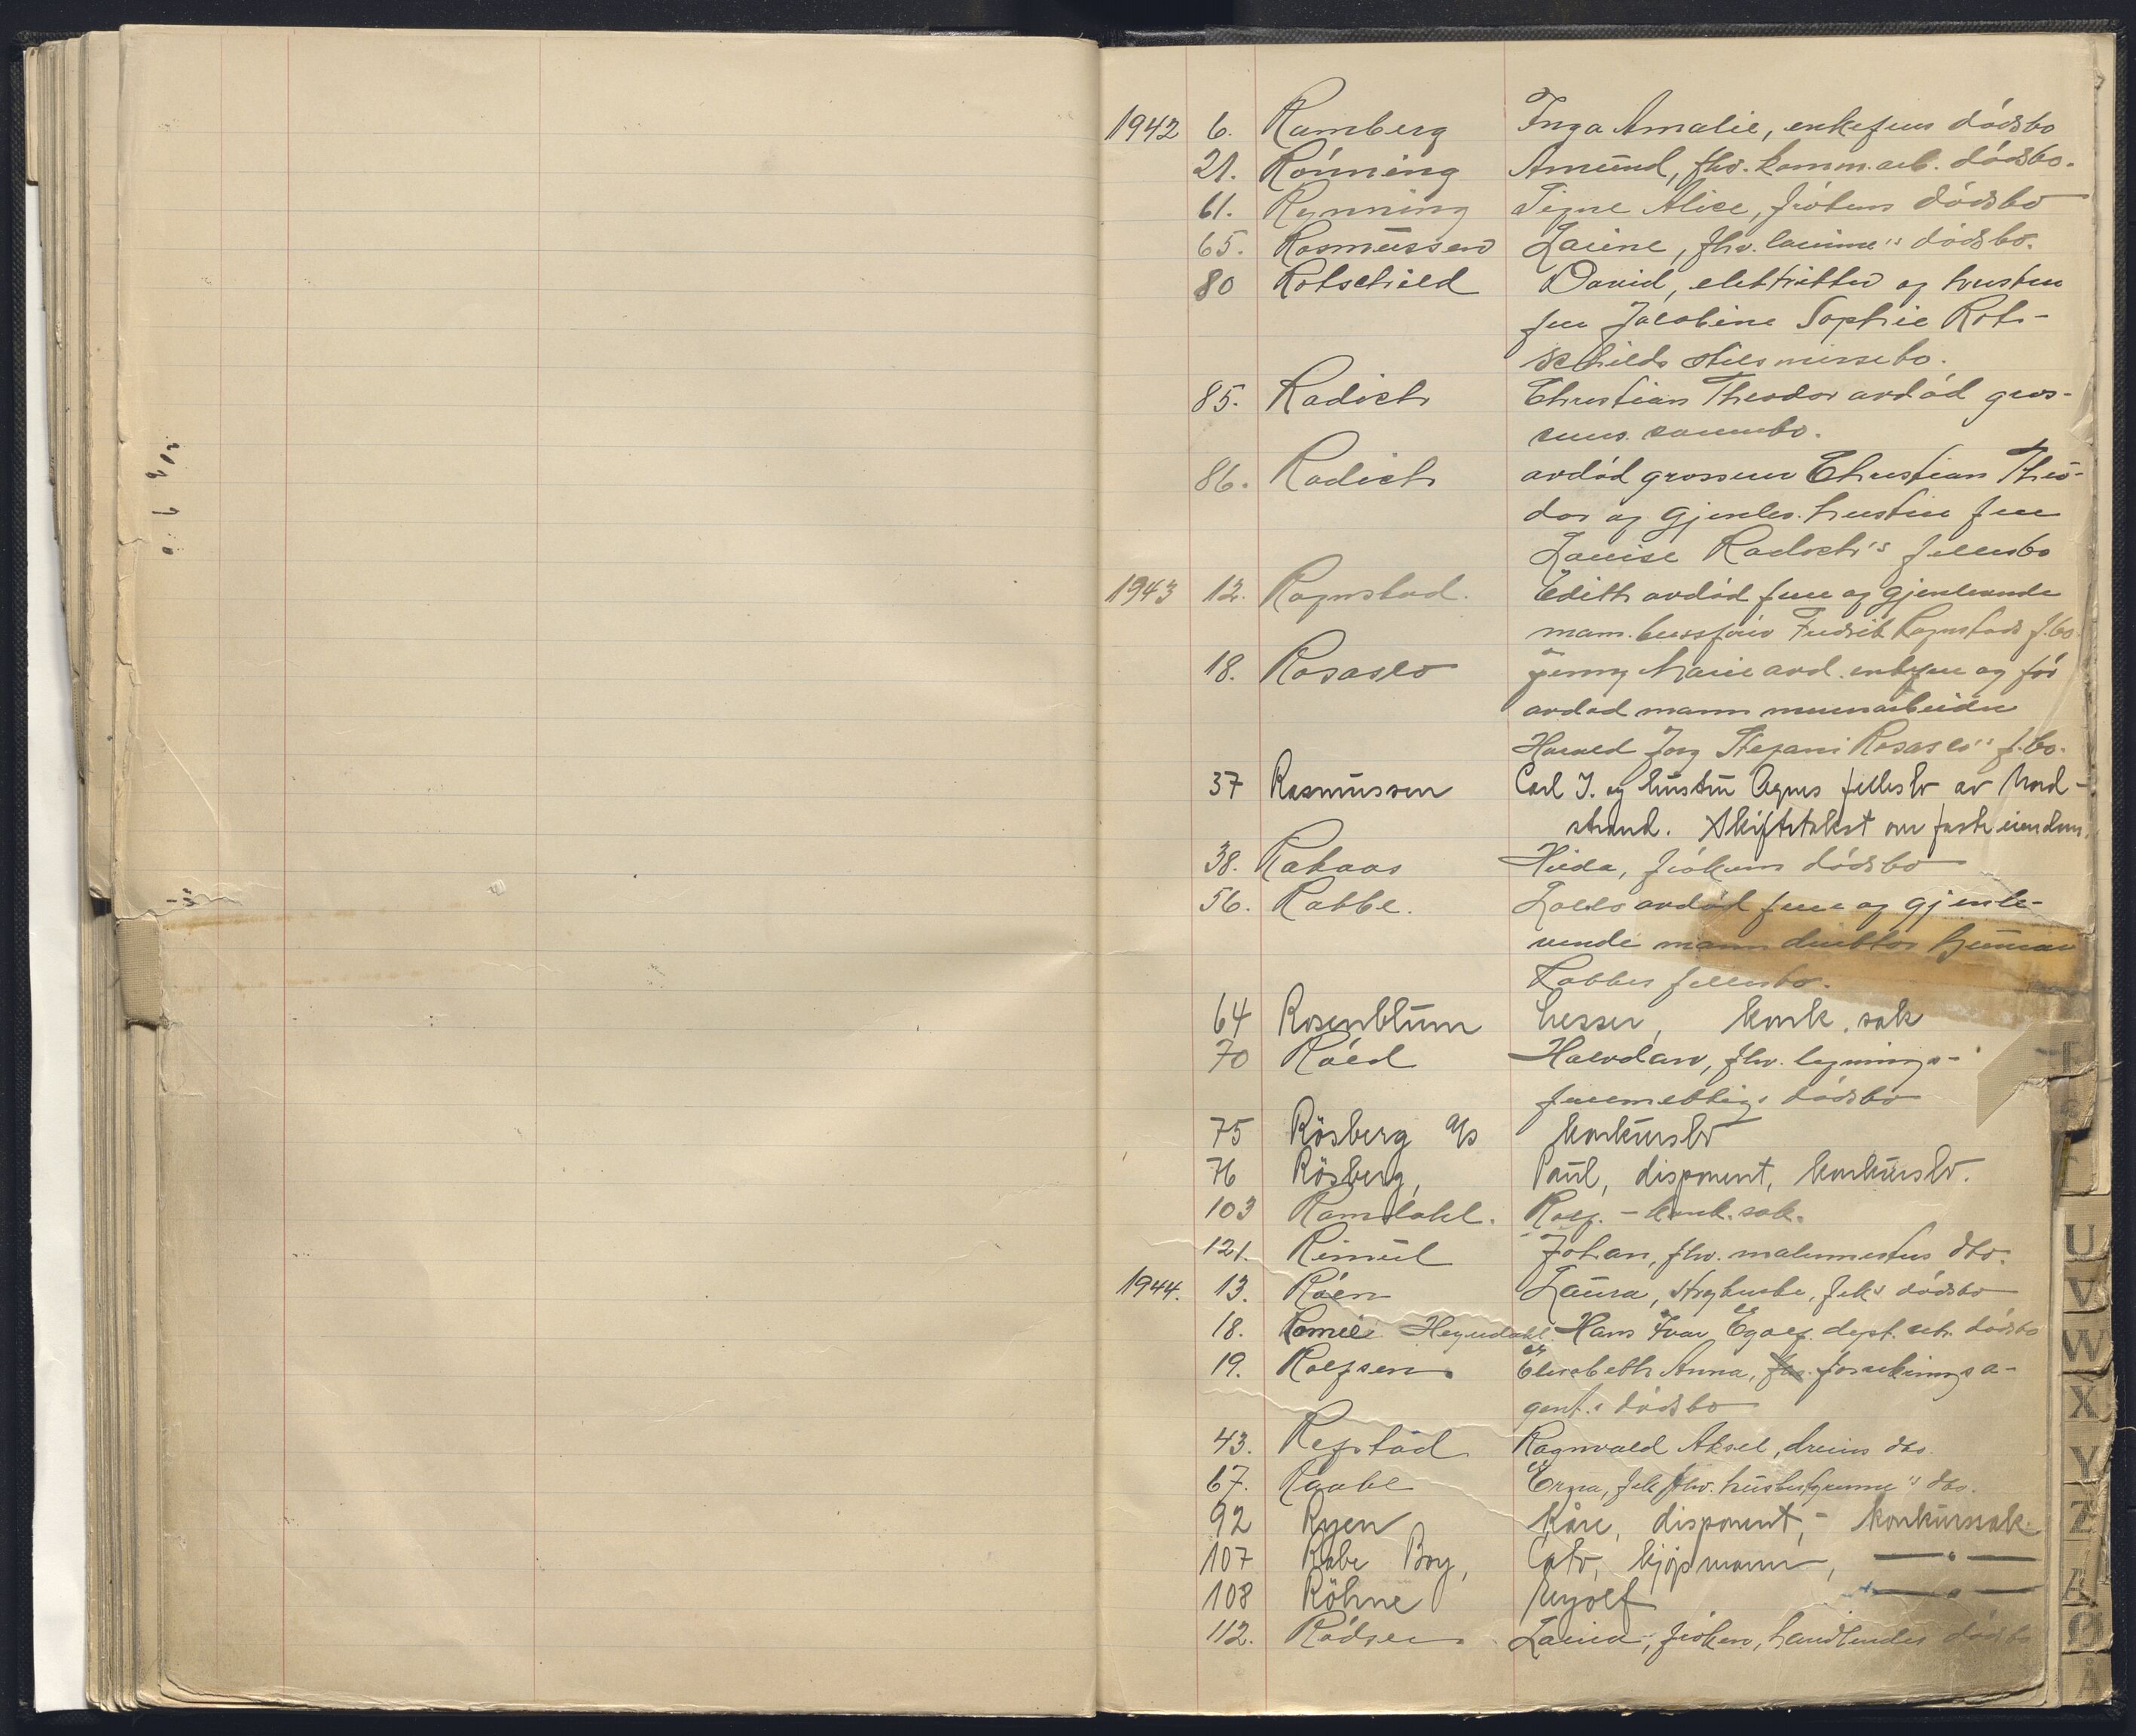 1942 6. Ramberg Inga Amalie, enkefrus dødsbo
21. Rønning Amund, fhv. komm.arb. dødsbo.
61. Rynning Signe Alice, frøkens dødsbo
65. Rasmussen Laura, fhv. dødsbo.
80 Rotschild David, elektriker og hustru
fru Jacobine Sophie Rot-
schilds bo.
85. Radich Christian Theodor avdød gros-
serers særbo.
86. Radich avdød grosserer Christian Theo-
dor og gjenlev. hustru fru
Louise Radich's fellesbo
1943 12. Ragnstad. Edith avdød frue og gjenlevende
mann. Fredrik Ragnstads f.bo.
18. Rosaslo Jenny Marie avd. enkefrue og før
avdød mann murarbeider
Harald Rosaslo's f.bo.
37 Rasmussen Carl J. og hustru Agnes fellesbo av Nord-
strand. Skiftetakst over faste eiendom.
38. Rabaas Hilda, frøkens dødsbo
56. Rabbe. avdød frue og gjenle-
vende mann direktør Gunnar
Rabbes fellesbo.
64 Rosenblum Lesser, konk. sak
70 Røed Halvdan, fhv. lignings-
fullmektigs dødsbo
75 Rösberg A/S konkursbo
76 Rösberg, Paul, disponent, konkursbo.
103 Ramdahl. Rolf. - konk. sak.
121. Rimul Johan, fhv. malermesters dbo.
1944. 13. Røen Laura, frk's dødsbo
18. Heyerdahl Hans Ivar dødsbo
19. Rolfsen Elisabeth Anna, forsikringsa-
gent's dødsbo
43. Refstad Ragnvald Aksel, dreiers dbo.
67. Raabe Erna, frk fhv. husbestyrerinne's dbo.
92 Ryen Kåre, disponent, - konkurssak
107 Rabe Boy, Cato, kjøpmann, — " —
108 Röhne Nyolf — " —
112. Rødsen frøken, handlendes dødsbo
U
V
W
X
Y
Z
Æ
Ø
Å